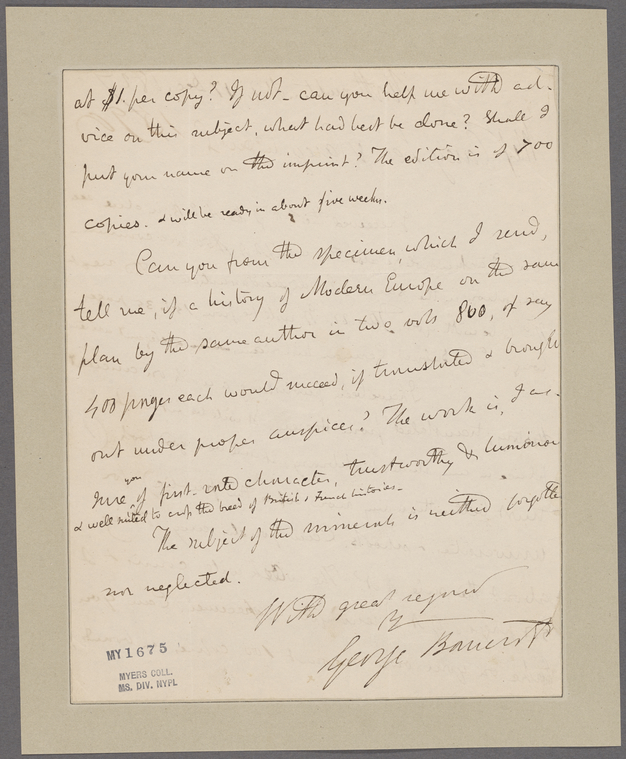 at $1. per copy? If not - can you help me with ad-
vice on this subject, what had best be done? Shall I
put your name on the imprint? The edition is of 700
copies. & will be ready in about five weeks.
Can you from the specimen, which I send,
tell me, if a history of Modern Europe on the same
plan by the same author in two vols 8vo, of say
400 pages each would succeed, if translated & brought
out under proper auspices? The work is, I as-
sure you of first-rate character, trustworthy & luminous
& well suited to crop the head of British & French histories -
The subject of the minerals is neither forgotten
nor neglected.
With great regard
Yr
George Bancroft
MY 1675
MYERS COLL.
MS. DIV. NYPL